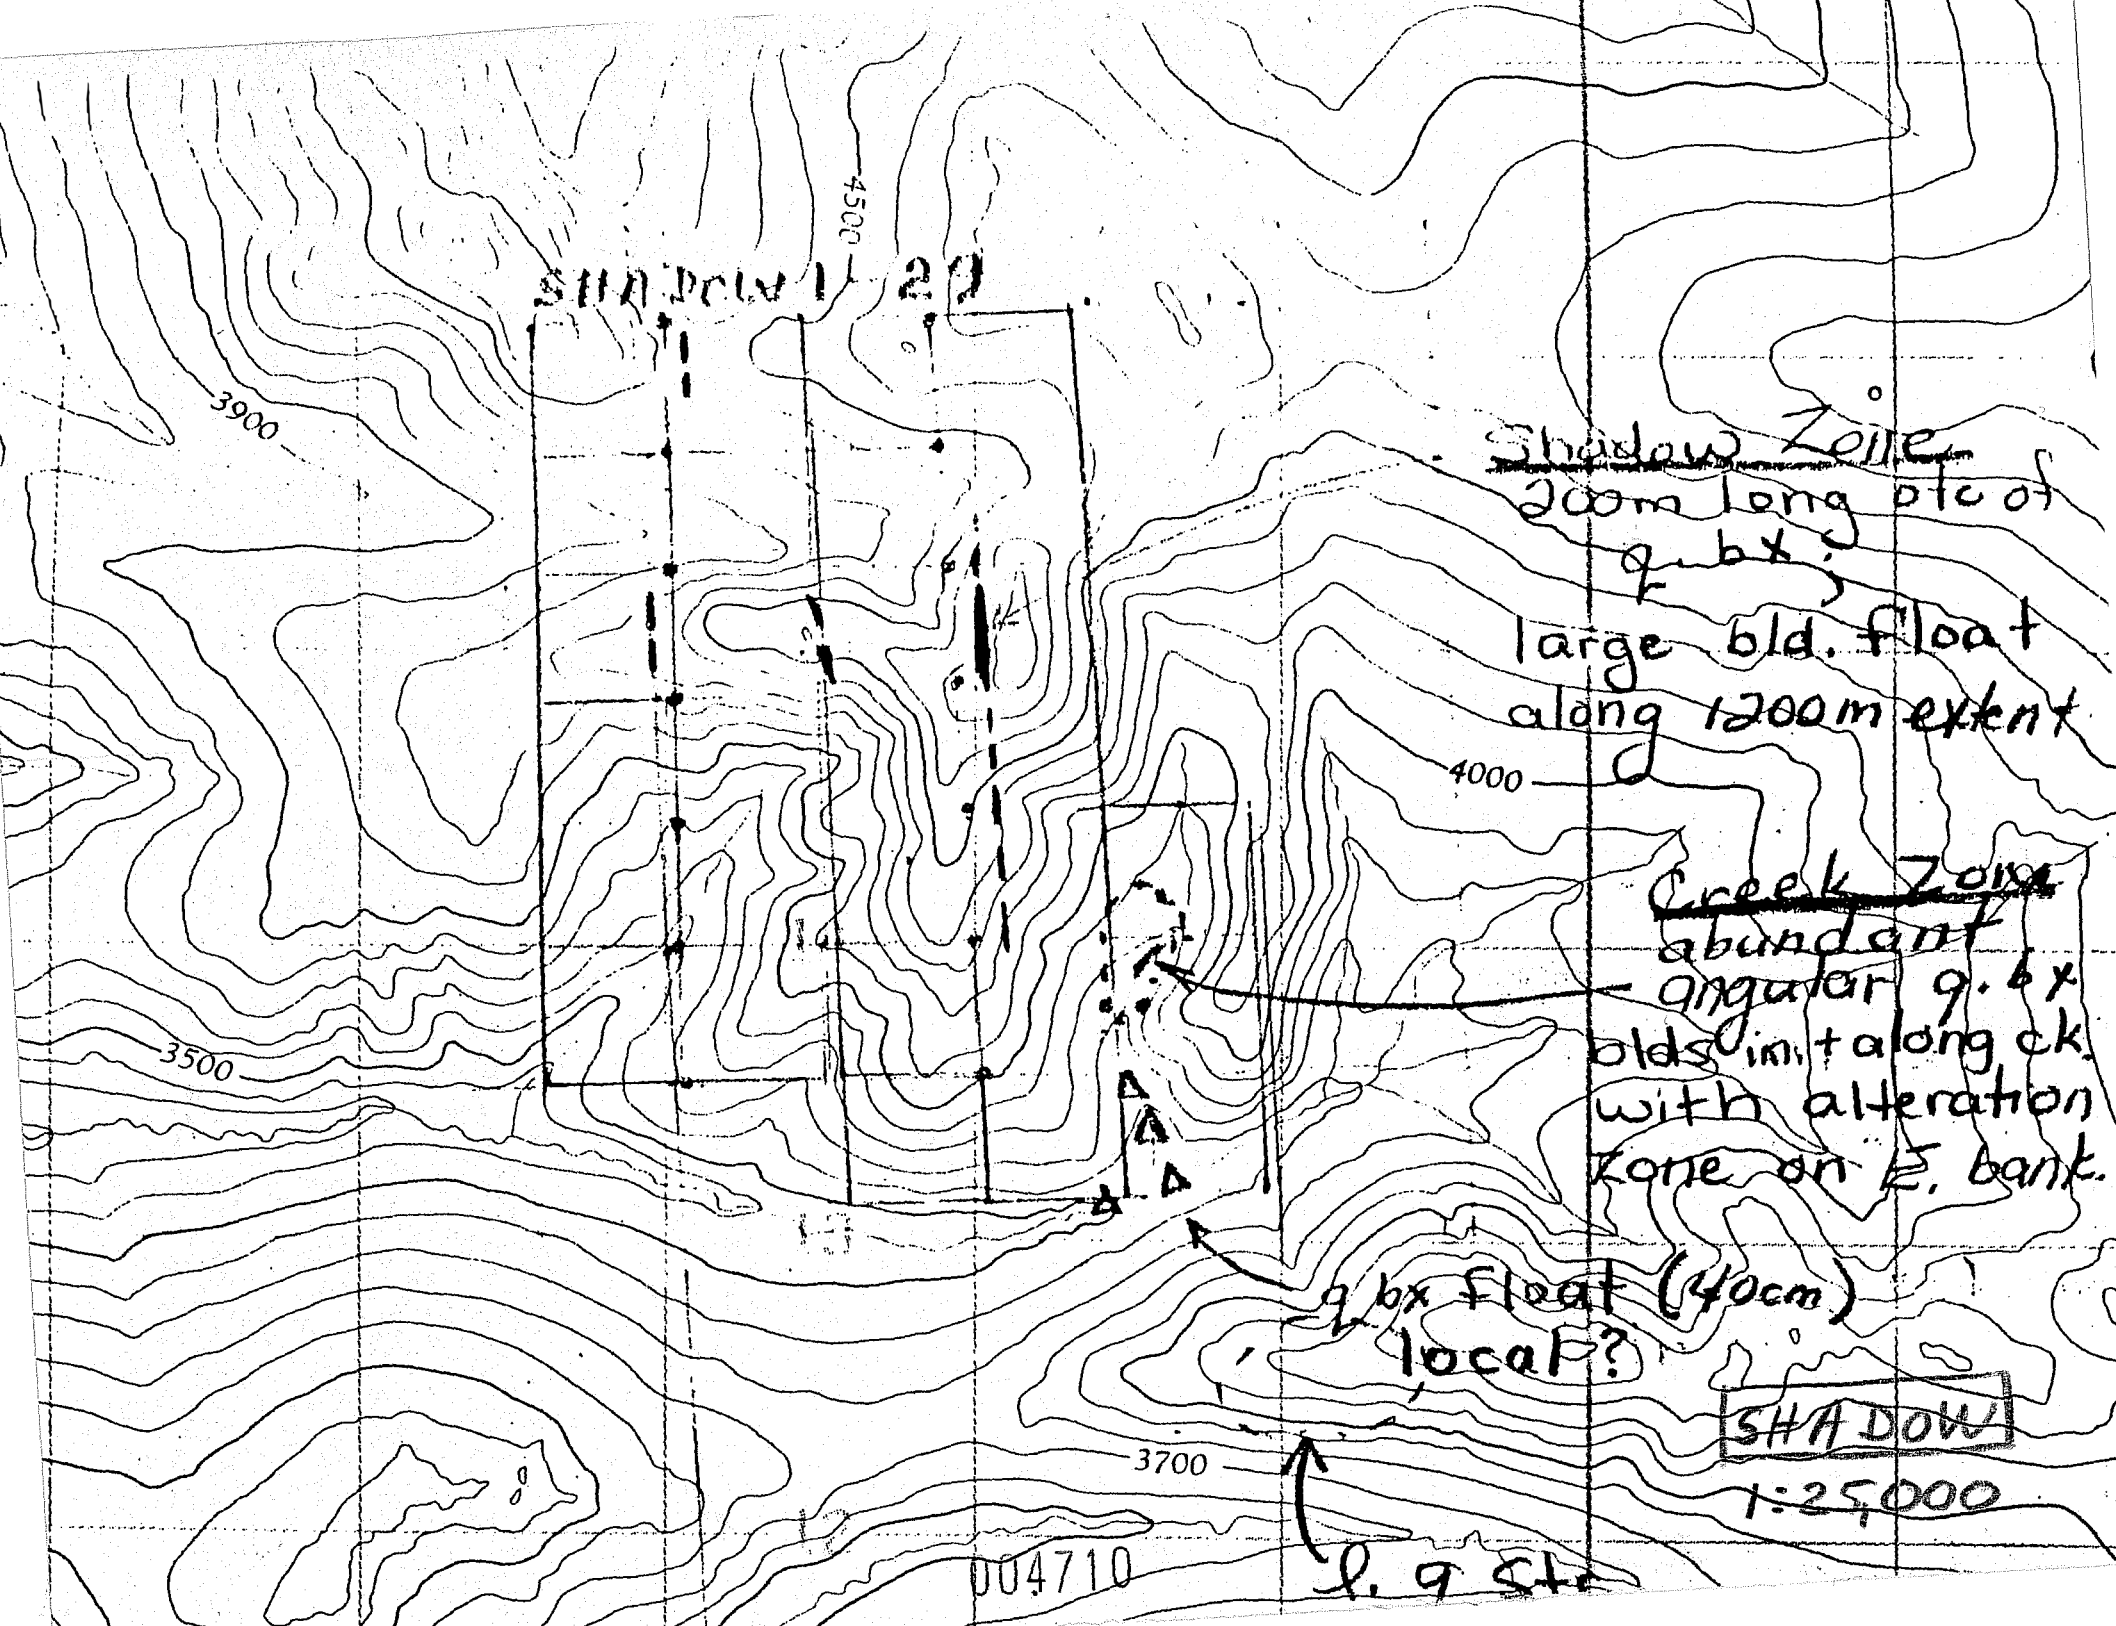 4500
SHADOW 1-29
3900
Shadow Zone
200m long otc of
q. bx ;
large bld. float
along 1200m extent
4000
Creek Zone
abundant
angular q. bx
blds in + along ck.
with alteration
zone on E. bank.
3500
q bx float (40cm)
local?
SHADOW
1:25,000
3700
004710
l. q Str